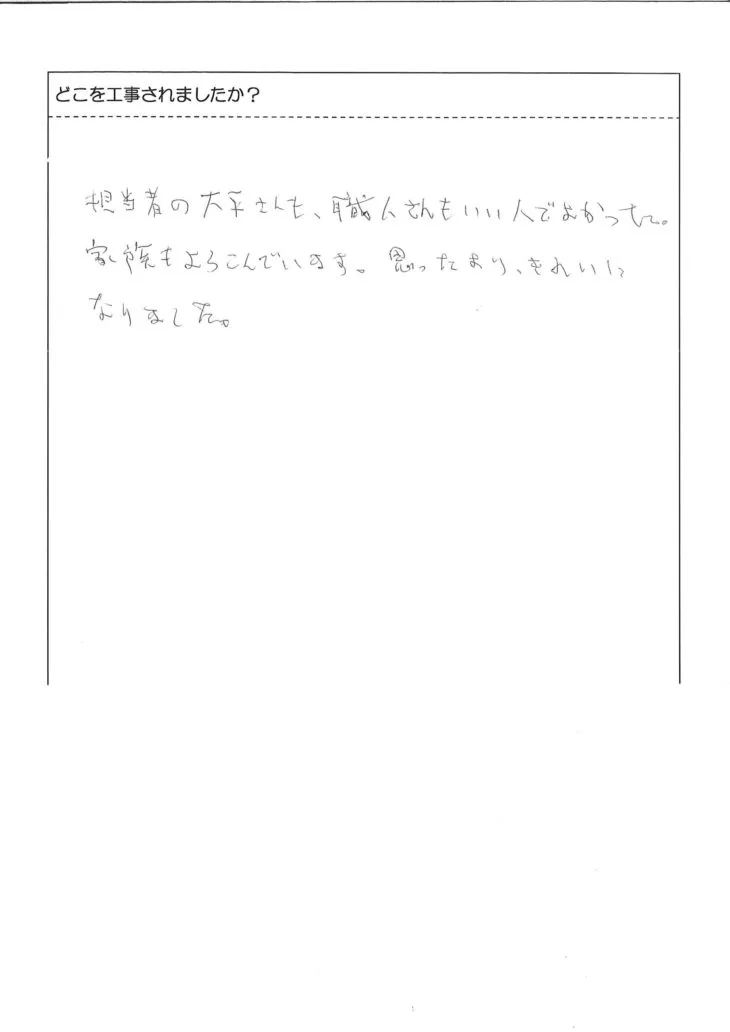 どこを工事されましたか？
担当者の大平さんも、職人さんもいい人でよかった。
家族もよろこんでいます。思ったより、きれいに
なりました。